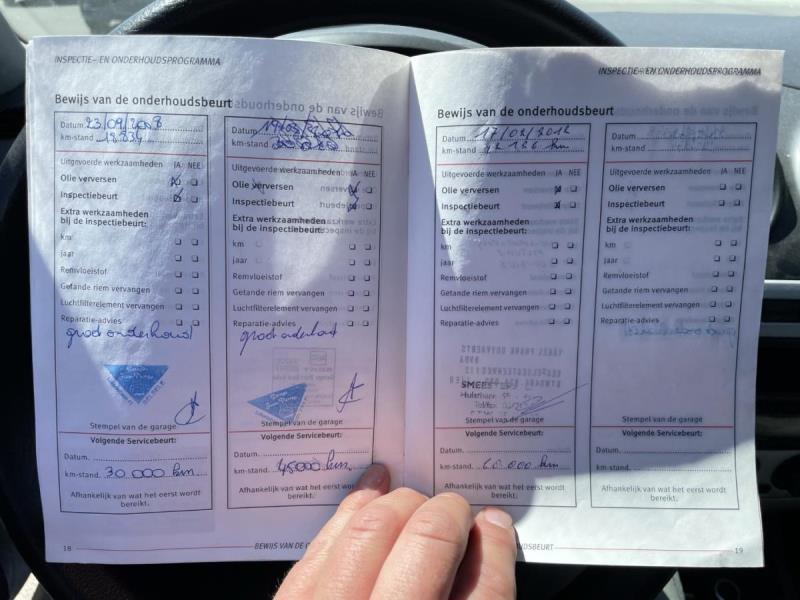 INSPECTIE- EN ONDERHOUDSPROGRAMMA
Bewijs van de onderhoudsbeurt
Datum 23/09/2008
km-stand
Uitgevoerde werkzaamheden JA NEE
Olie verversen
Inspectiebeurt
Extra werkzaamheden
bij de inspectiebeurt:
km
jaar
Remvloeistof
Getande riem vervangen
Luchtfilterelement vervangen
Reparatie-advies
groot onderhoud
Stempel van de garage
Volgende Servicebeurt:
Datum
km-stand. 30.000 km
Afhankelijk van wat het eerst wordt
bereikt.
Datum
km-stand
Uitgevoerde werkzaamheden JA NEE
Olie verversen
Inspectiebeurt
Extra werkzaamheden
bij de inspectiebeurt:
km
jaar
Remvloeistof
Getande riem vervangen
Luchtfilterelement vervangen
Reparatie-advies
groot onderhoud
Stempel van de garage
Volgende Servicebeurt:
Datum.
km-stand. 45000 km
Afhankelijk van wat het eerst wordt
bereikt.
18
BEWIJS VAN DE
INSPECTIE- EN ONDERHOUDSPROGRAMMA
Bewijs van de onderhoudsbeurt
Datum
km-stand
Uitgevoerde werkzaamheden JA NEE
Olie verversen
Inspectiebeurt
Extra werkzaamheden
bij de inspectiebeurt:
km
jaar
Remvloeistof
Getande riem vervangen
Luchtfilterelement vervangen
Reparatie-advies
Stempel van de garage
Volgende Servicebeurt:
Datum.
km-stand. 60 000 km
Afhankelijk van wat het eerst wordt
bereikt.
Datum
km-stand
Uitgevoerde werkzaamheden JA NEE
Olie verversen
Inspectiebeurt
Extra werkzaamheden
bij de inspectiebeurt:
km
jaar
Remvloeistof
Getande riem vervangen
Luchtfilterelement vervangen
Reparatie-advies
Stempel van de garage
Volgende Servicebeurt:
Datum.
km-stand.
Afhankelijk van wat het eerst wordt
bereikt.
19